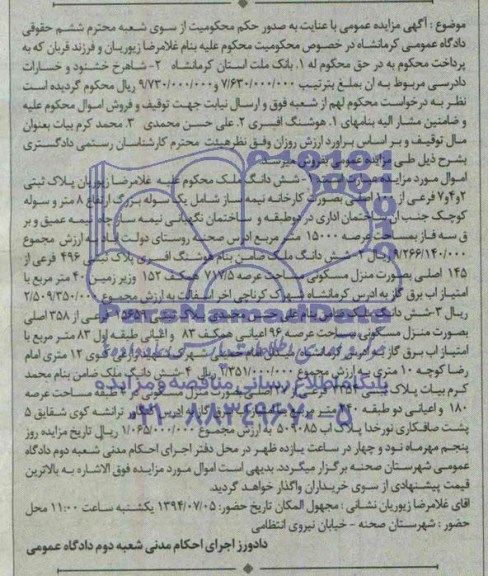 موضوع : آگهی مزایده عمومی با عنایت به صدور حکم محکومیت از سوی شعبه محترم ششم حقوقی
دادگاه عمومی کرمانشاه در خصوص محکومیت محکوم علیه بنام غلامرضا زیوریان و فرزند قربان که به
پرداخت محکوم به در حق محکوم له ۱. بانک ملت استان کرمانشاه ۲- شاهرخ خشنود و خسارات
دادرسی مربوط به ان بملغ بترتیب ۷/۶۳۰/۰۰۰/۰۰۰ و ۹/۷۳۰/۰۰۰/۰۰۰ ریال محکوم گردیده است
نظر به درخواست محکوم لهم از شعبه فوق و ارسال نیابت جهت توقیف و فروش اموال محکوم علیه
و ضامنین مشار الیه بنامهای ۱. هوشنگ افسری ۲. علی حسن محمدی ۳. محمد کرم بیات بعنوان
مال توقیف و بر اساس براورد ارزش روزان وفق نظر هیئت محترم کارشناسان رستمی دادگستری
بشرح ذیل طی مزایده عمومی بفروش میرسد
اموال مورد مزایده ۱- شش دانگ ملک محکوم علیه غلامرضا زیوریان پلاک ثبتی
۲و۴و۷ فرعی از اصلی بصورت کارخانه نیمه ساز شامل یک سوله بزرگ ارتفاع ۸ متر و سوله
کوچک جنب ان ساختمان اداری در دوطبقه و ساختمان نگهبانی نیمه ساز چاه نیمه عمیق و بر
ق سه فاز بمساحت عرصه ۱۵۰۰۰ متر مربع ادرس صحنه روستای دولت اباد به ارزش مجموع
۹/۲۶۶/۱۴۰/۰۰۰ ریال ۲- شش دانگ ملک ضامن بنام هوشنگ افسری پلاک ثبتی ۴۹۶ فرعی از
۱۴۵ اصلی بصورت منزل مسکونی مساحت عرصه ۷۱۷/۵ همکف ۱۵۲ وزیر زمین ۴۰ متر مربع با
امتیاز اب برق گاز به ادرس کرمانشاه شهرک کرناچی اخر اسفالت به ارزش مجموع ۲/۵۰۹/۳۵۰/۰۰۰
ریال ۳- شش دانگ ملک ضامن بنام علی حسن محمدی پلاک ثبتی فرعی از ۳۵۸ اصلی
بصورت منزل مسکونی مساحت عرصه ۹۶ اعیانی همکف ۸۳ و اعیانی طبقه اول ۸۳ متر مربع با
امتیاز اب برق گاز به ادرس کرمانشاه کوی ۱۲ متری امام
رضا کوچه ۱۰ متری به ارزش مجموع ۲/۳۵۱/۰۰۰/۰۰۰ ریال ۴- شش دانگ ملک ضامن بنام محمد
کرم بیات پلاک ثبتی فرعی از اصلی بصورت منزل مسکونی در ۲ طبقه مساحت عرصه
۱۸۰ و اعیانی دو طبقه ۲۴۰ متر مربع کوی شقایق ۵
پشت صافکاری نورخدا پلاک اب ۵۰۹۰۸۵ به ارزش مجموع ۱/۰۶۵/۰۰۰/۰۰۰ ریال تاریخ مزایده روز
پنجم مهرماه نود و چهار در ساعت یازده ظهر در محل دفتر اجرای احکام مدنی شعبه دوم دادگاه
عمومی شهرستان صحنه برگزار میگردد. بدیهی است اموال مورد مزایده فوق الاشاره به بالاترین
قیمت پیشنهادی از سوی خریداران واگذار خواهد گردید.
اقای غلامرضا زیوریان نشانی : مجهول المکان تاریخ حضور: ۱۳۹۴/۰۷/۰۵ یکشنبه ساعت ۱۱:۰۰ محل
حضور : شهرستان صحنه - خیابان نیروی انتظامی
دادورز اجرای احکام مدنی شعبه دوم دادگاه عمومی
پایگاه اطلاع رسانی مناقصه و مزایده
۰۲۱-۸۸۳۴۹۶۷۰-۵